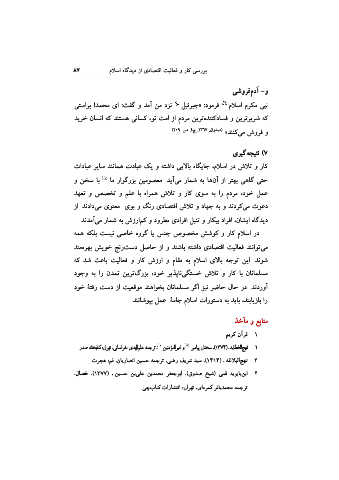 بررسی کار و فعالیت اقتصادی از دیدگاه اسلام ۸۳
و- آدم‌فروشی
نبی مکرم اسلام فرمود: «جبرئیل نزد من آمد و گفت: ای محمد! براستی
که شریرترین و فسادکننده‌ترین مردم از امت تو، کسانی هستند که انسان خرید
و فروش می‌کنند»
۷) نتیجه‌گیری
کار و تلاش در اسلام، جایگاه بالایی داشته و یک عبادت همانند سایر عبادات
حتی گاهی بهتر از آن‌ها به شمار می‌آید. معصومین بزرگوار ما با سخن و
عمل خود، مردم را به سوی کار و تلاش همراه با علم و تخصص و تعهد
دعوت می‌کردند و به جهاد و تلاش اقتصادی رنگ و بوی معنوی می‌دادند. از
دیدگاه ایشان، افراد بیکار و تنبل افرادی مطرود و کم‌ارزش به شمار می‌آمدند.
در اسلام کار و کوشش مخصوص جنس یا گروه خاصی نیست بلکه همه
می‌توانند فعالیت اقتصادی داشته باشند و از حاصل دسترنج خویش بهره‌مند
شوند. این توجه بالای اسلام به مقام و ارزش کار و فعالیت باعث شد که
مسلمانان با کار و تلاش خستگی‌ناپذیر خود، بزرگ‌ترین تمدن را به وجود
آوردند. در حال حاضر نیز اگر مسلمانان بخواهند موقعیت از دست رفتهٔ خود
را بازیابند، باید به دستورات اسلام جامهٔ عمل بپوشانند.
منابع و مآخذ
۱ قرآن کریم.
نهج‌الفصاحه،
۲ نهج‌البلاغه، سید شریف رضی، ترجمه حسین انصاریان، قم: هجرت.
ابن‌بابویه قمی (شیخ صدوق)، ابوجعفر محمدبن علی‌بن حسین، (۱۳۷۷)، خصال،
ترجمه محمدباقر کمره‌ای، تهران: انتشارات کتابچی.